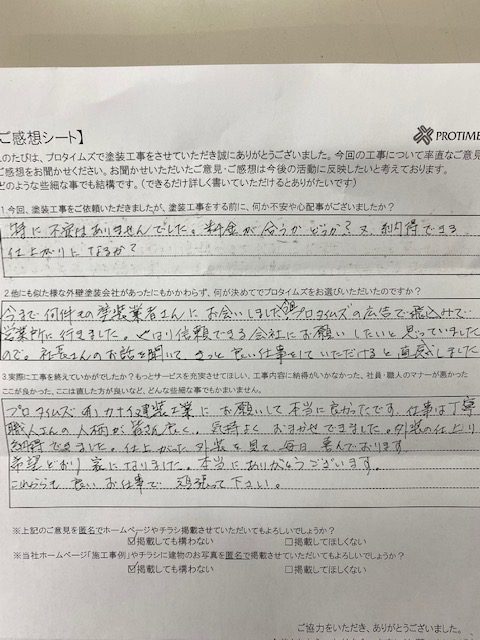 ご感想シート】
PROTIME
このたびは、プロタイムズで塗装工事をさせていただき誠にありがとうございました。今回の工事について率直なご意見
ご感想をお聞かせください。お聞かせいただいたご意見・ご感想は今後の活動に反映したいと考えております。
どのような些細な事でも結構です。（できるだけ詳しく書いていただけるとありがたいです）
1.今回、塗装工事をご依頼いただきましたが、塗装工事をする前に、何か不安や心配事がございましたか？
特に不安はありませんでした。料金が合うかどうか？又、納得できる
仕上がりになるか？
2.他にも似た様な外壁塗装会社があったにもかかわらず、何が決めてでプロタイムズをお選びいただいたのですか？
今まで何件もの塗装業者さんにお会いしましたプロタイムズの広告で
営業所に行きました。やはり信頼できる会社にお願いしたいと思っていました
ので。社長さんのお話を聞いて、きっと良い仕事をしていただけると直感しました
3.実際に工事を終えていかがでしたか？もっとサービスを充実させてほしい、工事内容に納得がいかなかった、社員・職人のマナーが悪かった
ここが良かった、ここは直した方が良いなど、どんな些細な事でもかまいません。
プロタイムズ カナイ塗装工業にお願いして本当に良かったです。仕事は丁寧
職人さんの人柄が皆さん良く。気持よくおまかせできました。外装の仕上り
納得できました。仕上がった外装を見て、毎日喜んでおります。
希望どおり家になりました。本当にありがとうございます。
これからも良いお仕事で頑張って下さい。
※上記のご意見を匿名でホームページやチラシ掲載させていただいてもよろしいでしょうか？
☑掲載しても構わない □掲載してほしくない
※当社ホームページ「施工事例」やチラシに建物のお写真を匿名で掲載させていただいてもよろしいでしょうか？
☑掲載しても構わない □掲載してほしくない
ご協力をいただき、ありがとうございました。